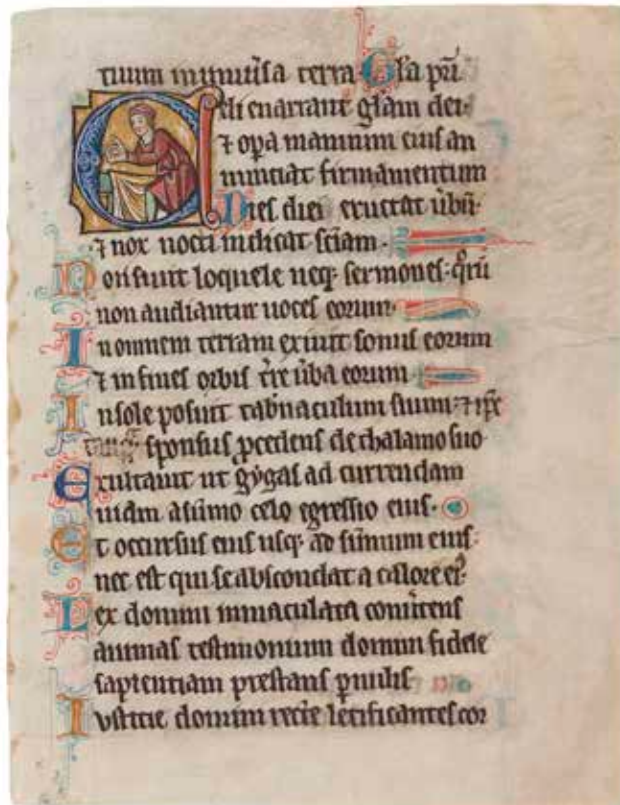 tium in uniũsa terra Gl̃a pr̃i
Celi enarrant gl̃am dei·
⁊ op̃a manuum eiuſ an
nunciat firmamentum
Dieſ diei eructat ũbũ·
⁊ nox nocti indicat ſc̃iam·
Non ſunt loquele neq; ſermoneſ· qͦrũ
non audiantur uoceſ eorum·
In omnem terram exiuit ſonuſ eorum
⁊ in fineſ orbiſ t̃re ũba eorum
In ſole poſuit tab̃naculum ſuum· ⁊ ip̃e
ſponſuſ ꝓcedenſ de thalamo ſuo
Exultauit ut gẏgaſ ad currendam
uiam aſũmo celo egreſſio eiuſ·
Et occurſuſ eiuſ uſq; ad ſũmum eiuſ:
nec eſt qui ſe abſcondat a calore ei᾿·
Lex domini inmaculata conũtenſ
animaſ teſtimonium domini fidele
ſapientiam preſtanſ paruuliſ
Iuſticie domini recte letificanteſ cor